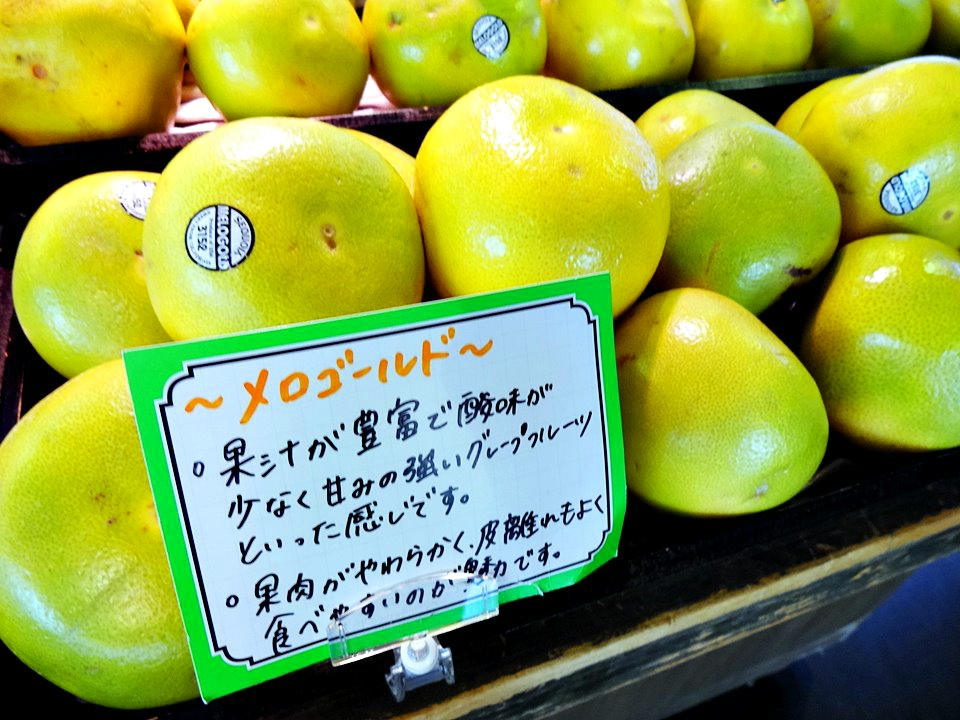 MELOGOLD
SEQUOIA
MELOGOLD
3152
~メロゴールド~
○果汁が豊富で酸味が
少なく甘みの強いグレープフルーツ
といった感じです。
○果肉がやわらかく、皮離れもよく
食べやすいのが魅力です。